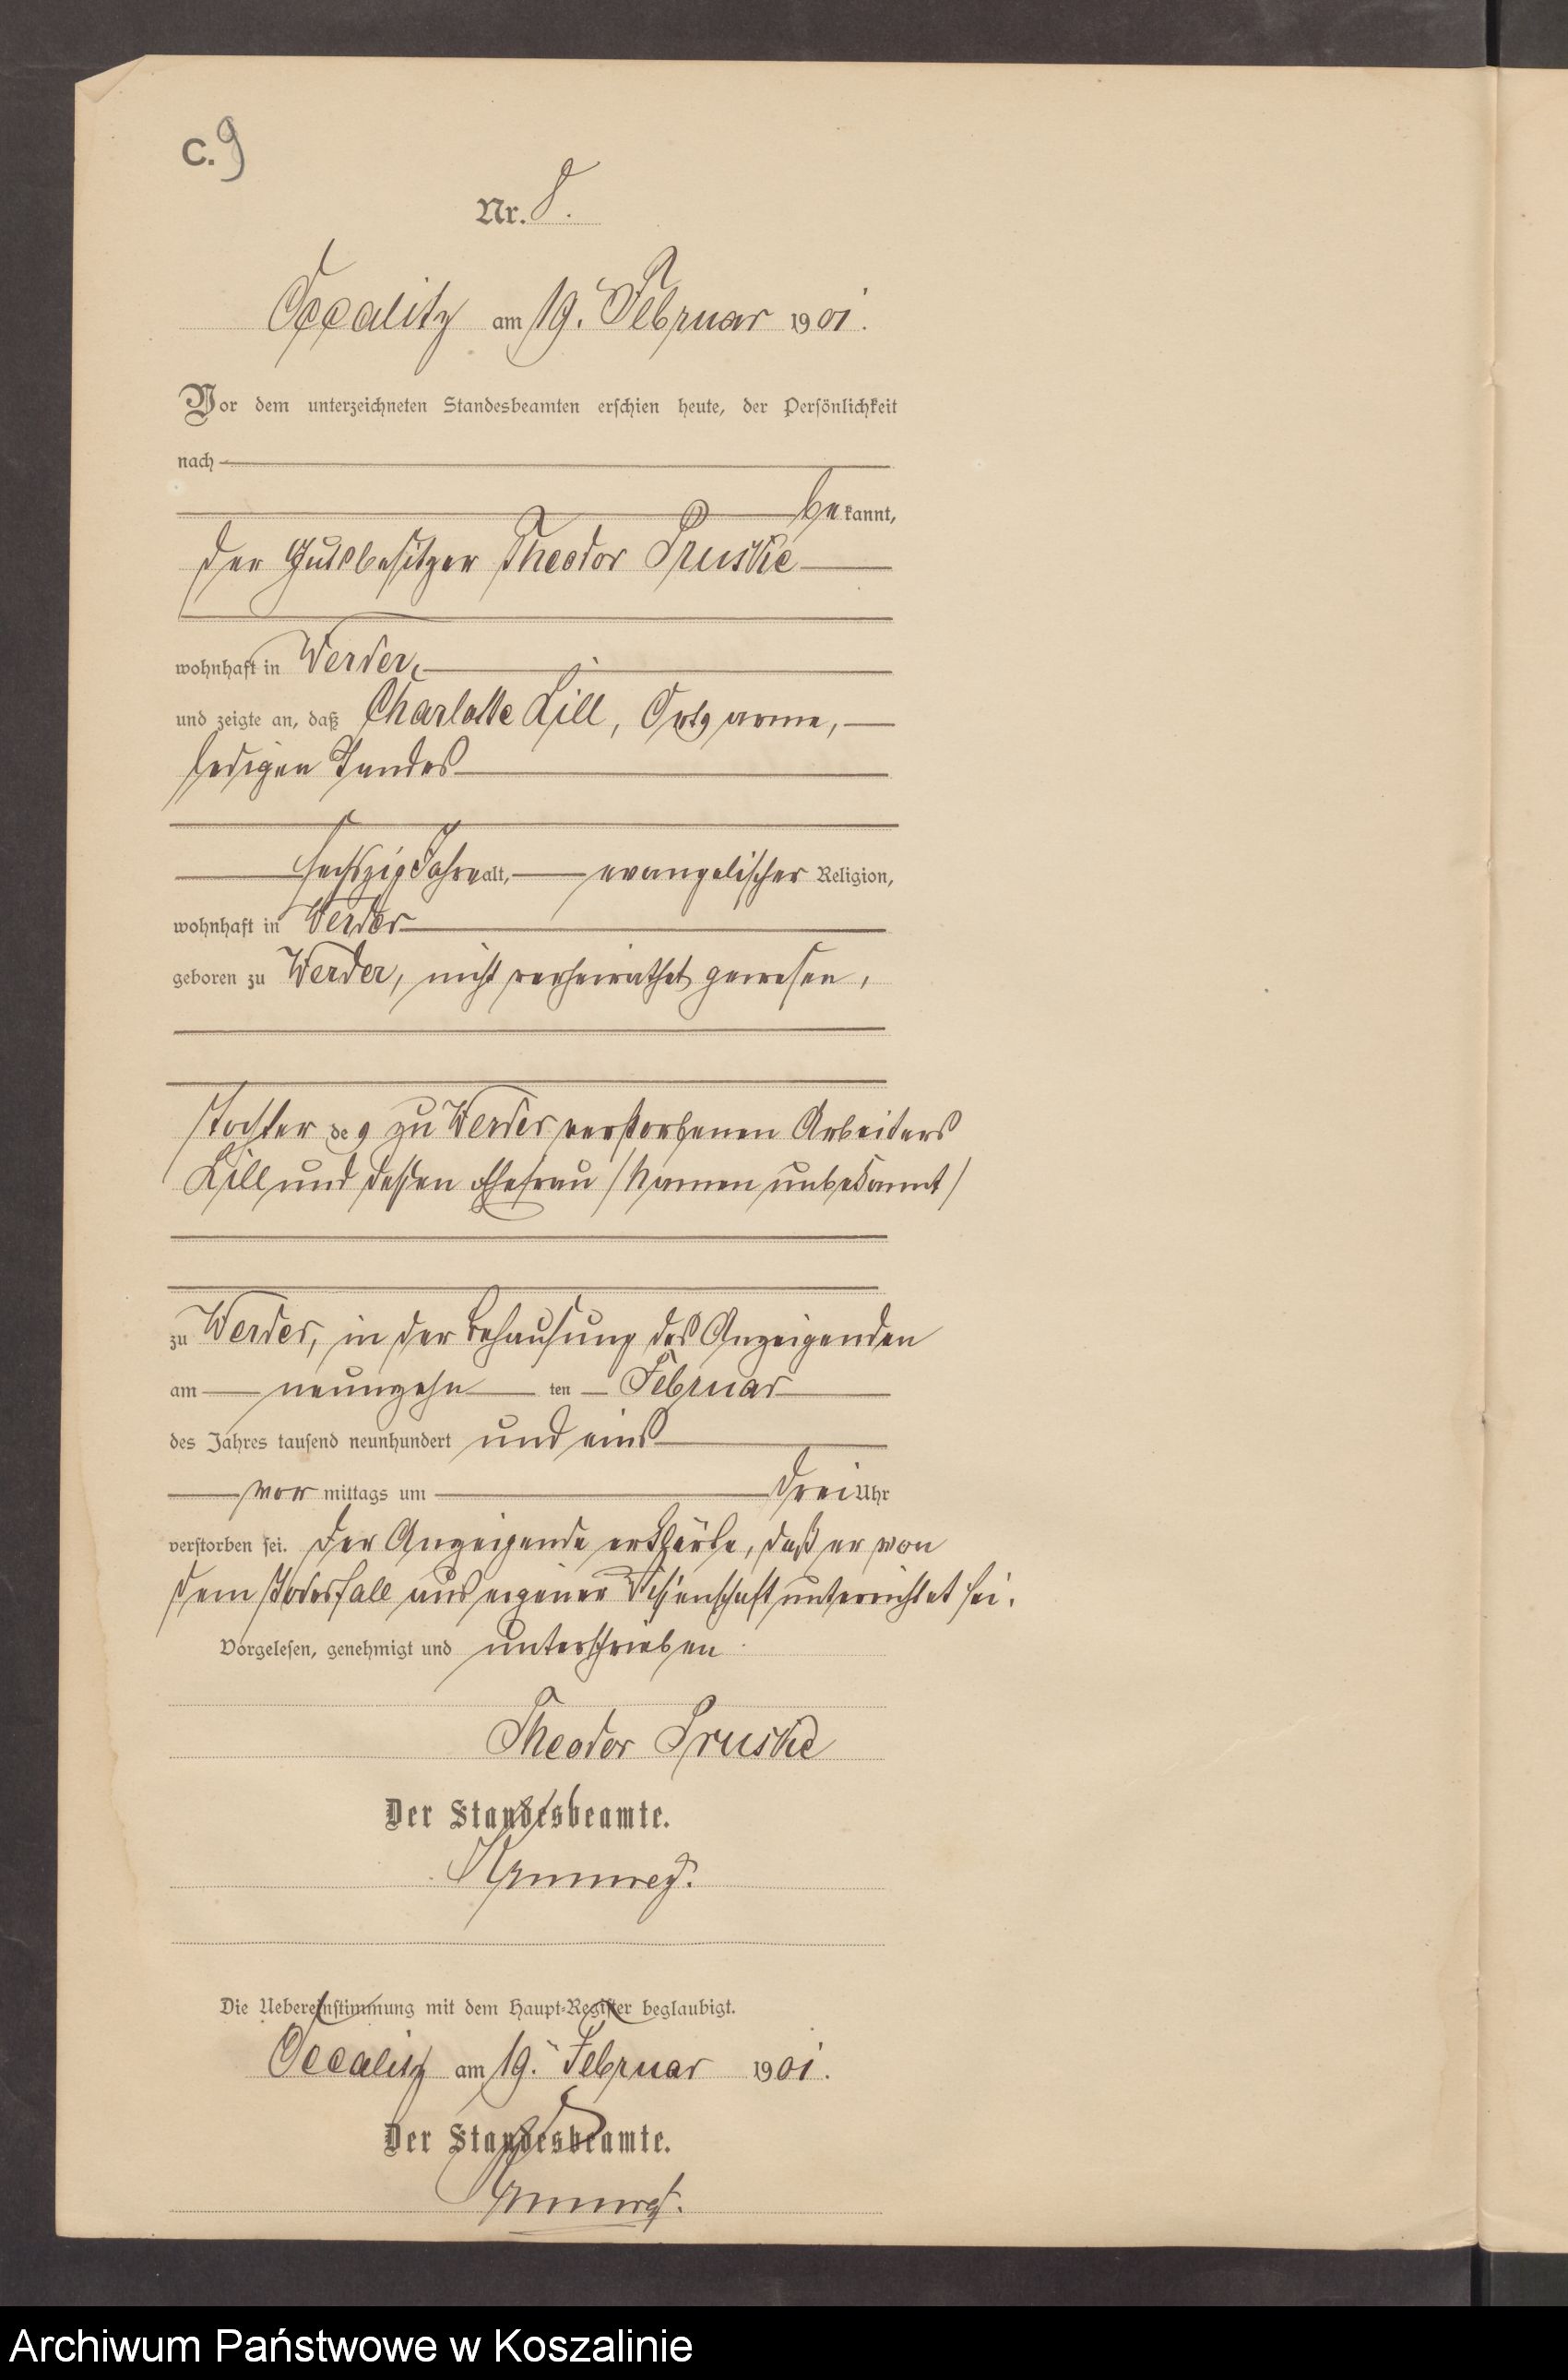 C. 9
Nr. 8.
Occalitz am 19. Februar 1901.
Vor dem unterzeichneten Standesbeamten erschien heute, der Persönlichkeit
nach
bekannt,
der Gutsbesitzer Theodor Pruske
wohnhaft in Werder,
und zeigte an, daß Charlotte Lill, Ortsarme,
ledigen Standes
sechszig Jahre alt, evangelischer Religion,
wohnhaft in Werder
geboren zu Werder, nicht verheirathet gewesen,
Tochter des zu Werder verstorbenen Arbeiters
Lill und dessen Ehefrau /Namen unbekannt/
zu Werder, in der Behausung des Anzeigenden
am neunzehn ten Februar
des Jahres tausend neunhundert und eins
vor mittags um drei Uhr
verstorben sei. Der Anzeigende erklärte, daß er von
dem Todesfall aus eigener Wissenschaft unterrichtet sei.
Vorgelesen, genehmigt und unterschrieben
Theodor Pruske
Der Standesbeamte.
Die Uebereinstimmung mit dem Haupt-Register beglaubigt.
Occalitz am 19. Februar 1901.
Der Standesbeamte.
Archiwum Państwowe w Koszalinie